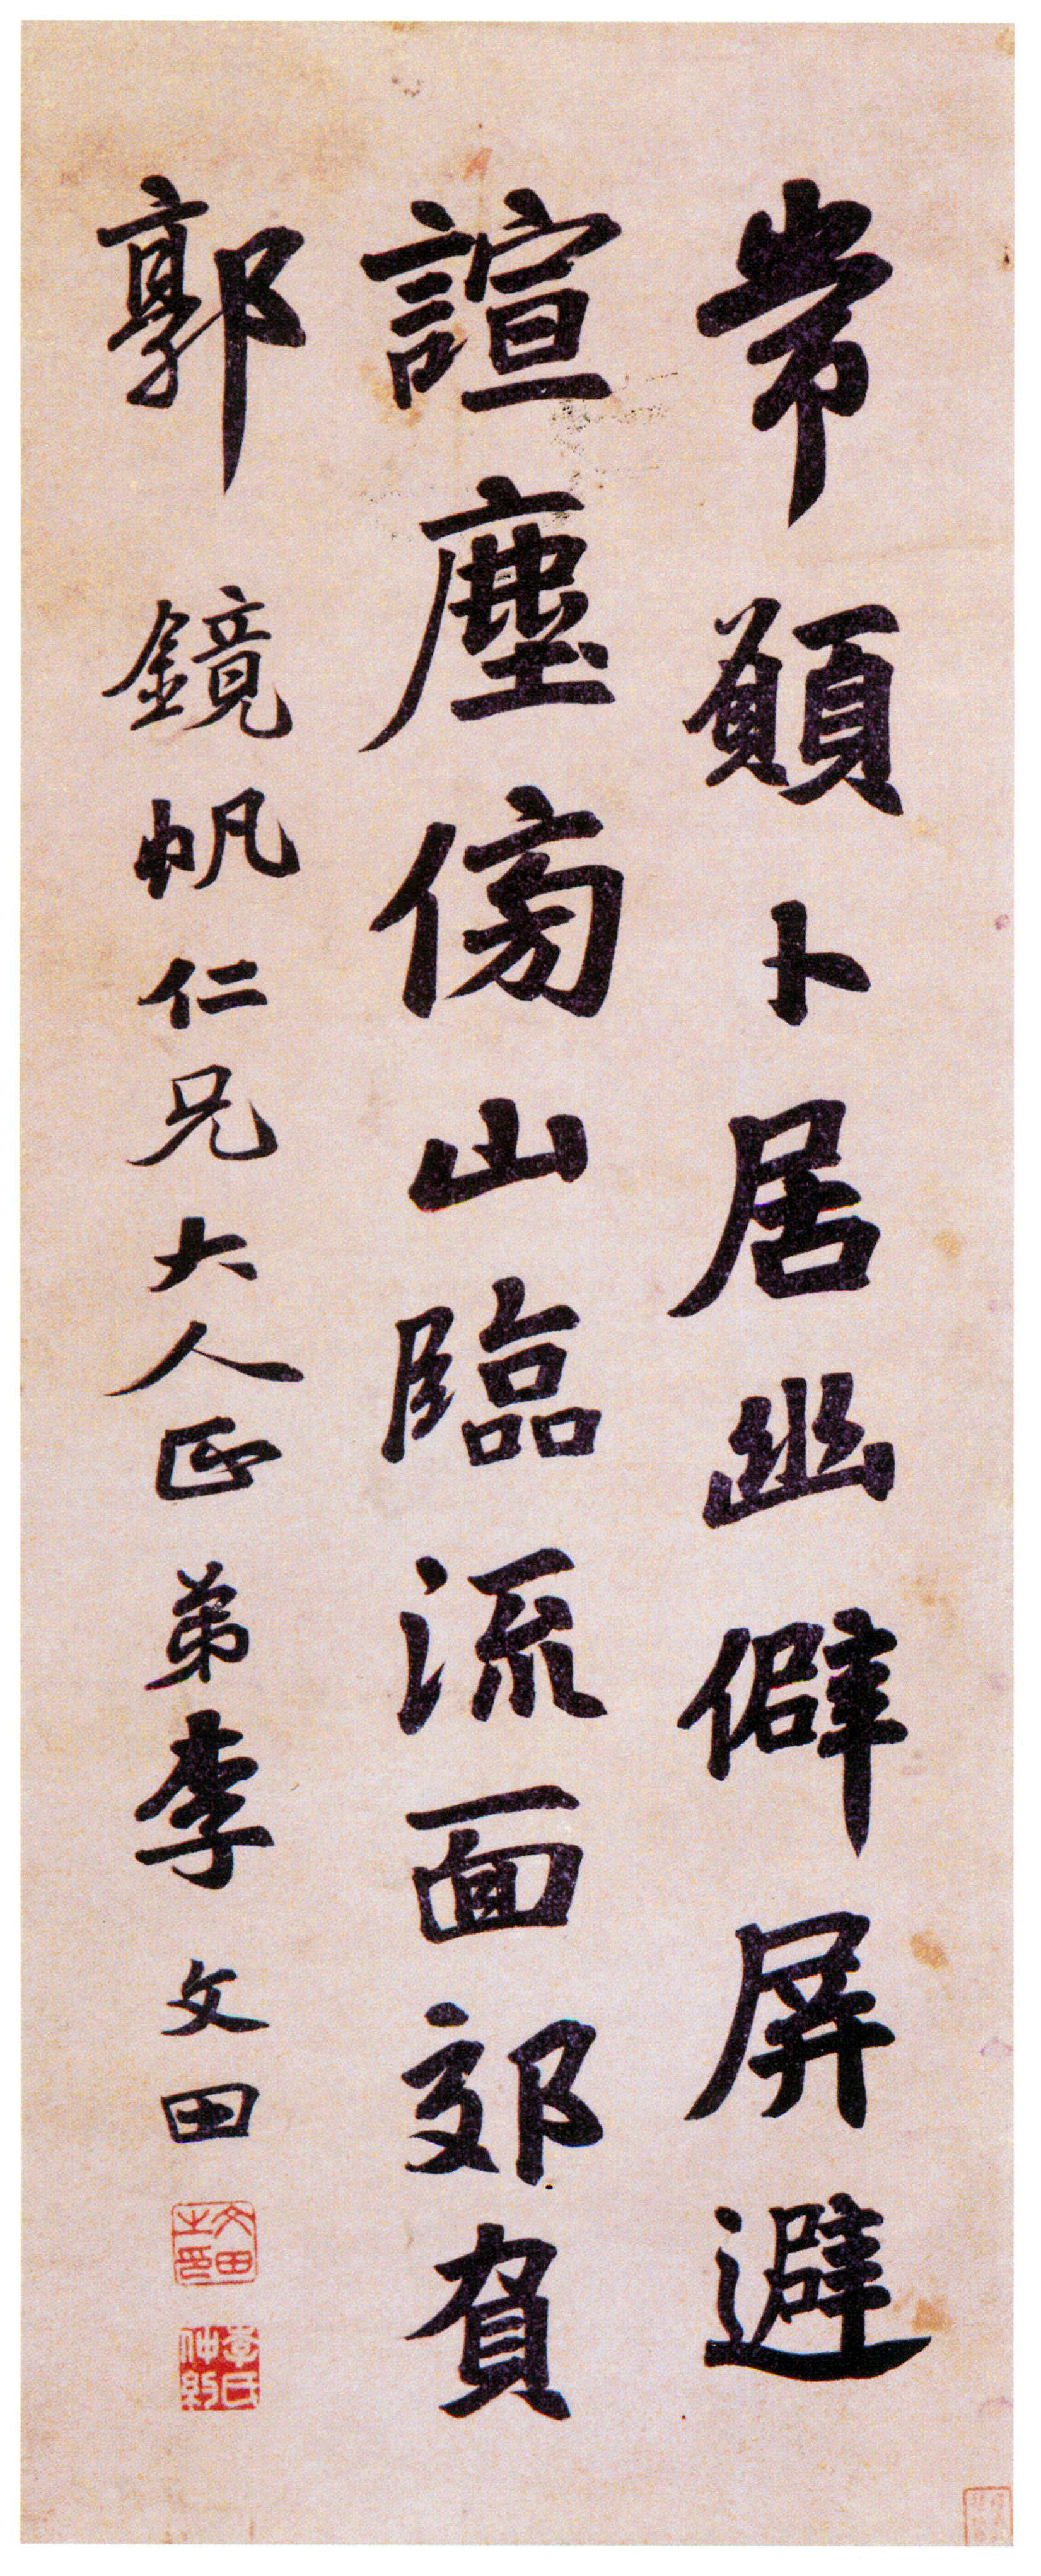 常願卜居幽僻屏避
諠塵傍山臨流面郊負
郭 鏡帆仁兄大人正 弟李文田
文田之印
李氏仲約